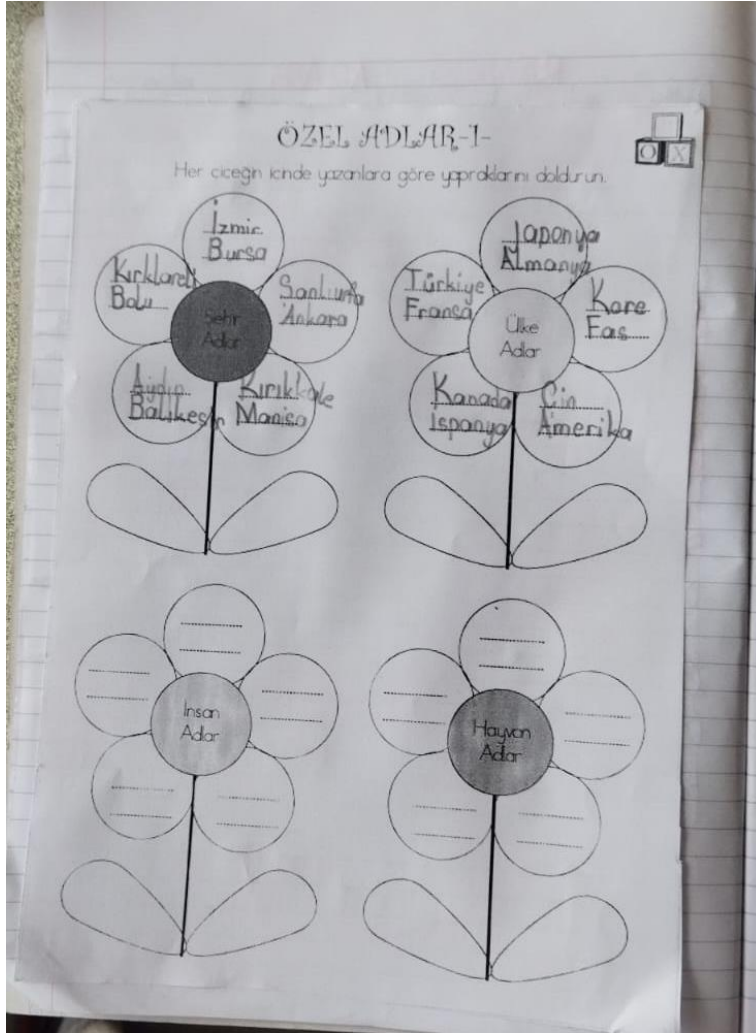 ÖZEL ADLAR-1-
O X
Her çiçeğin içinde yazanlara göre yapraklarını doldurun.
İzmir
Bursa
Kırklareli
Bolu
Şanlıurfa
Ankara
Şehir
Adları
Aydın
Balıkesir
Kırıkkale
Manisa
Japonya
Almanya
Türkiye
Fransa
Kore
Fas
Ülke
Adları
Kanada
İspanya
Çin
Amerika
İnsan
Adları
Hayvan
Adları